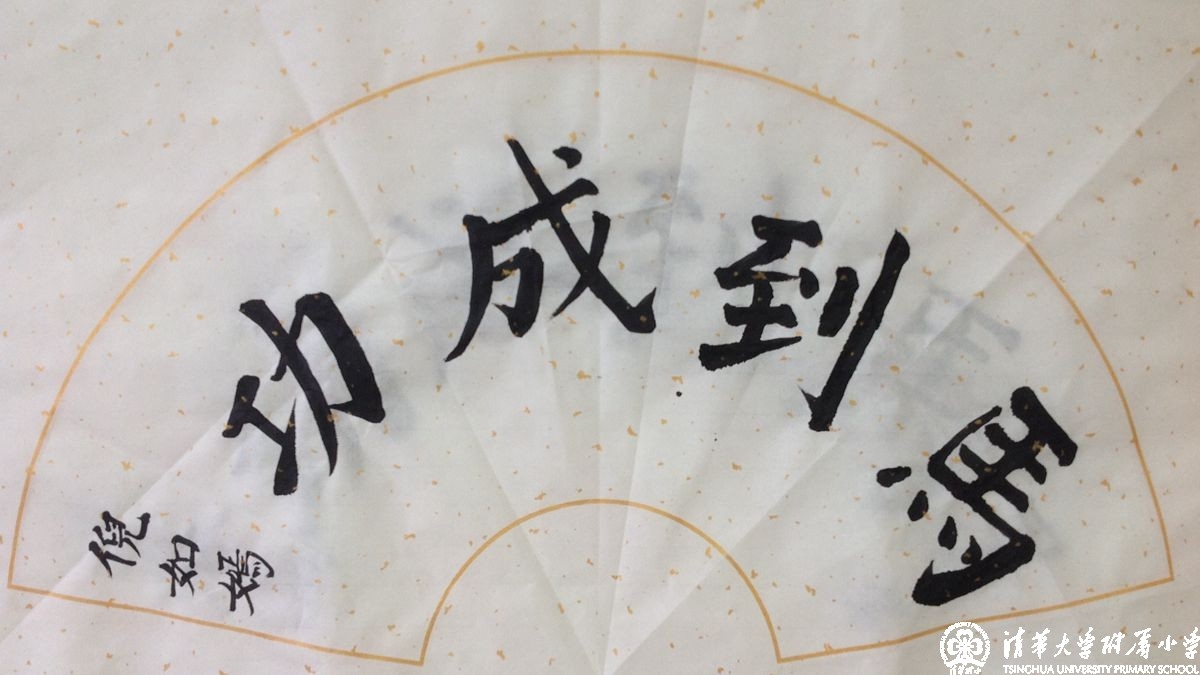 馬到成功
倪如嫣
清华大学附属小学
TSINGHUA UNIVERSITY PRIMARY SCHOOL